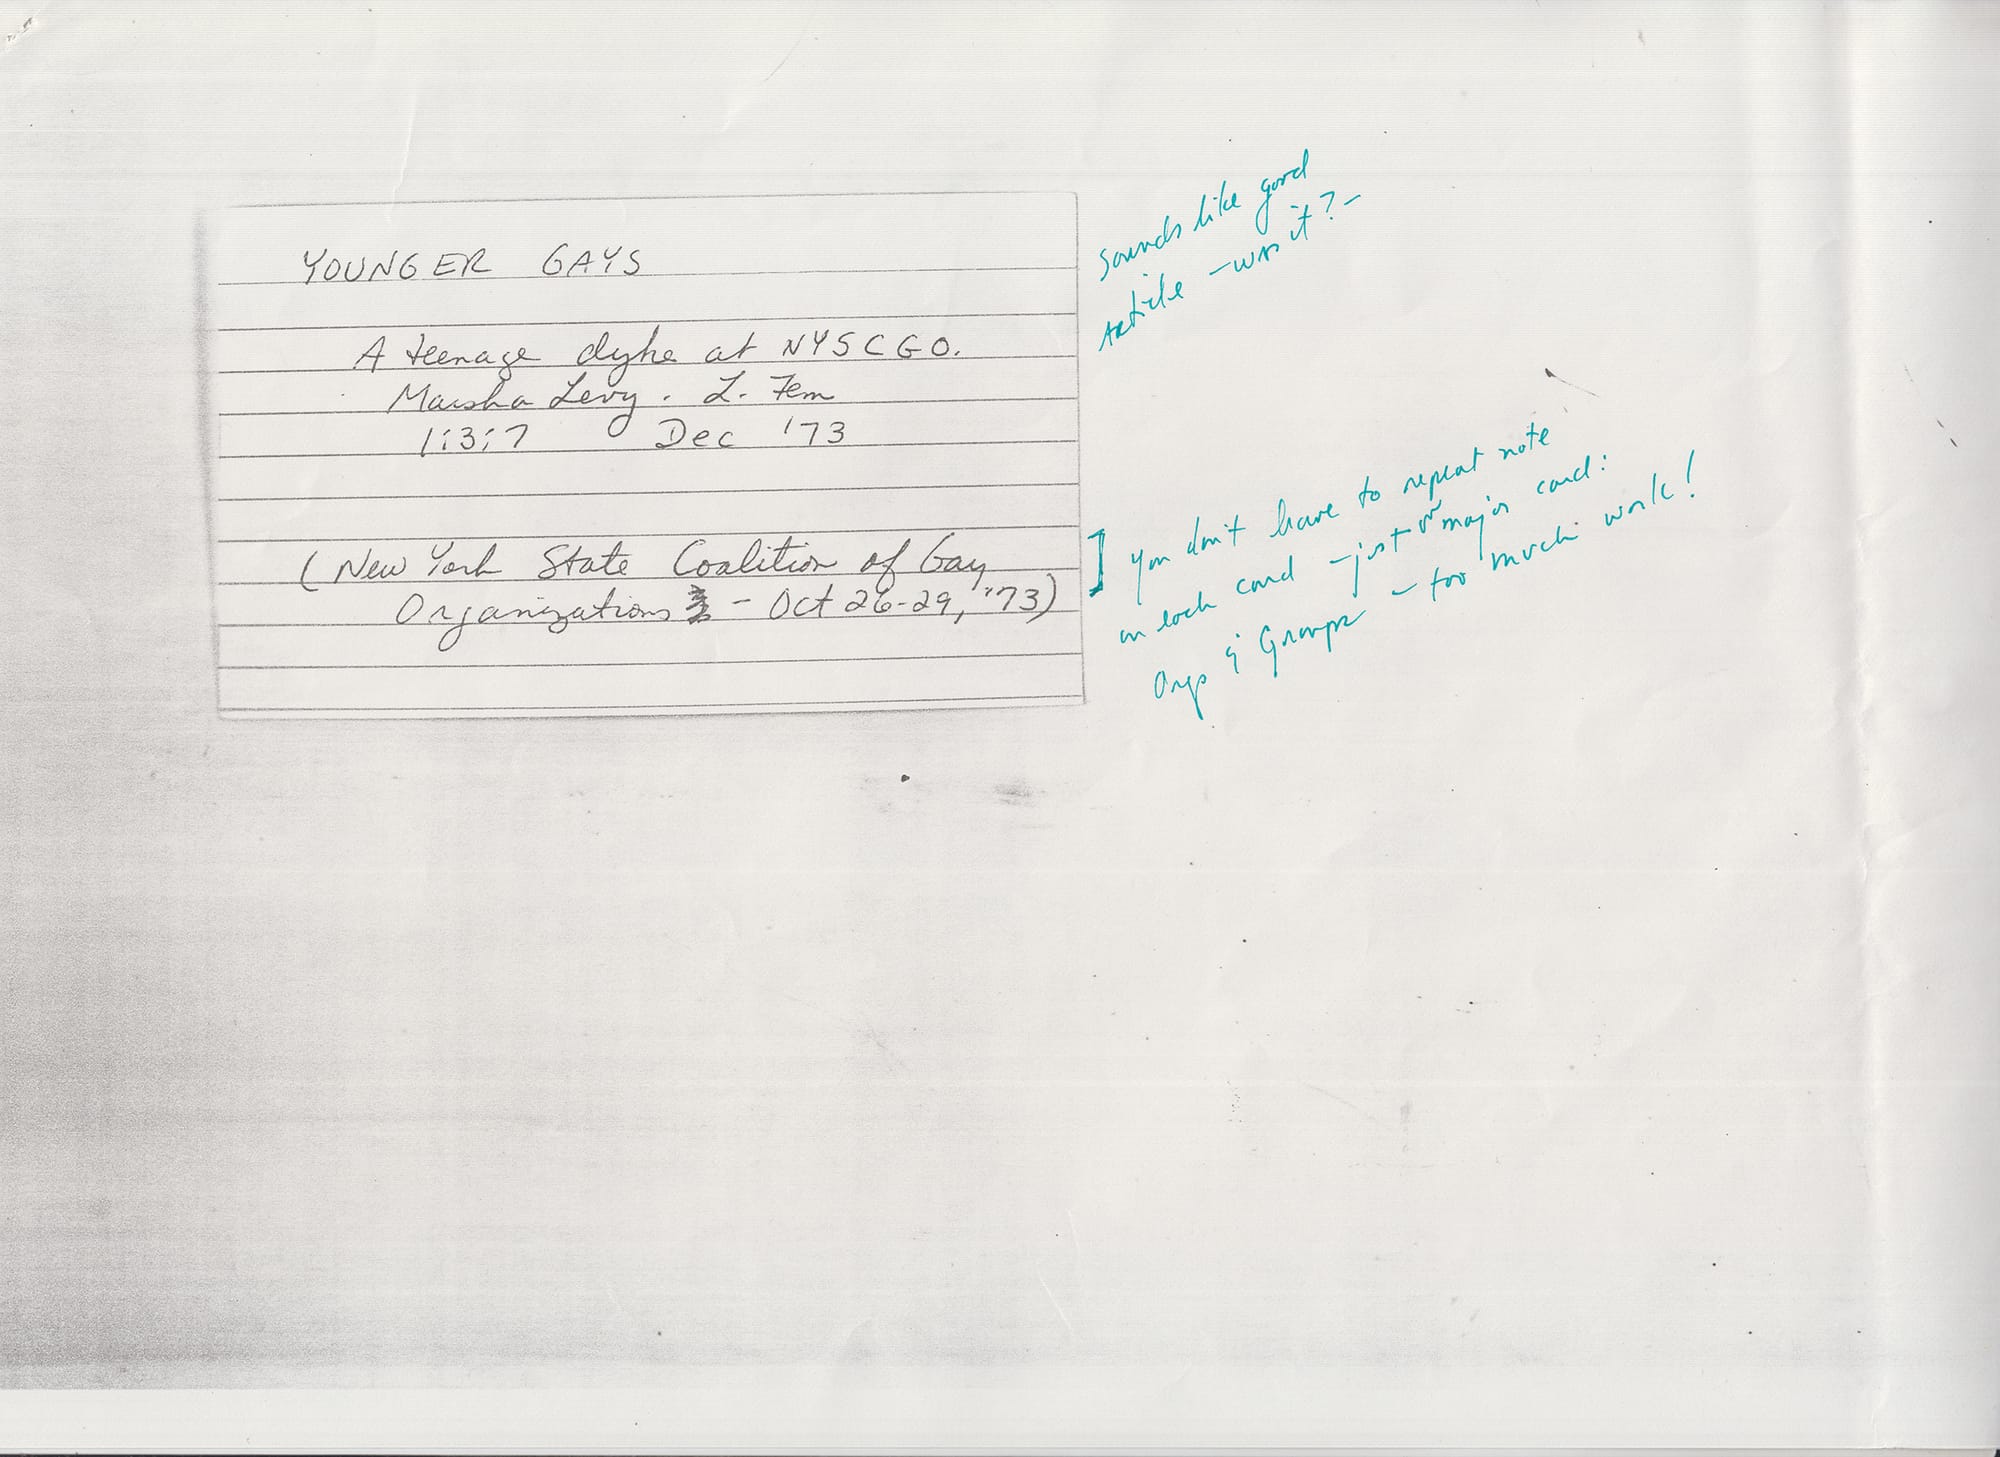 YOUNGER GAYS
A teenage dyke at NYSCGO.
Marsha Levy. L. Fem
1:3:7 Dec '73
(New York State Coalition of Gay
Organizations - Oct 26-29, '73)
Sounds like good
Article - was it? -
] you don't have to repeat note
on each card - just on major card:
Orgs & Groups - too much work!